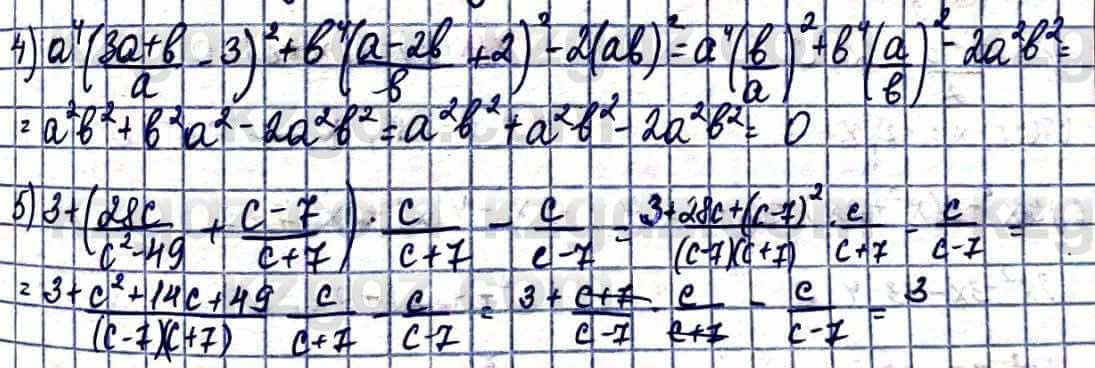 4) a⁴((3a+b)/a - 3)² + b⁴((a-2b)/b + 2)² - 2(ab)² = a⁴(b/a)² + b⁴(a/b)² - 2a²b² =
= a²b² + b²a² - 2a²b² = a²b² + a²b² - 2a²b² = 0
5) 3+(28c/(c²-49) + (c-7)/(c+7)) · c/(c+7) - c/(c-7) = (3+28c+(c-7)²)/((c-7)(c+7)) · c/(c+7) - c/(c-7) =
= (3+c²+14c+49)/((c-7)(c+7)) · c/(c+7) - c/(c-7) = 3 + (c+7)/(c-7) · c/(c+7) - c/(c-7) = 3